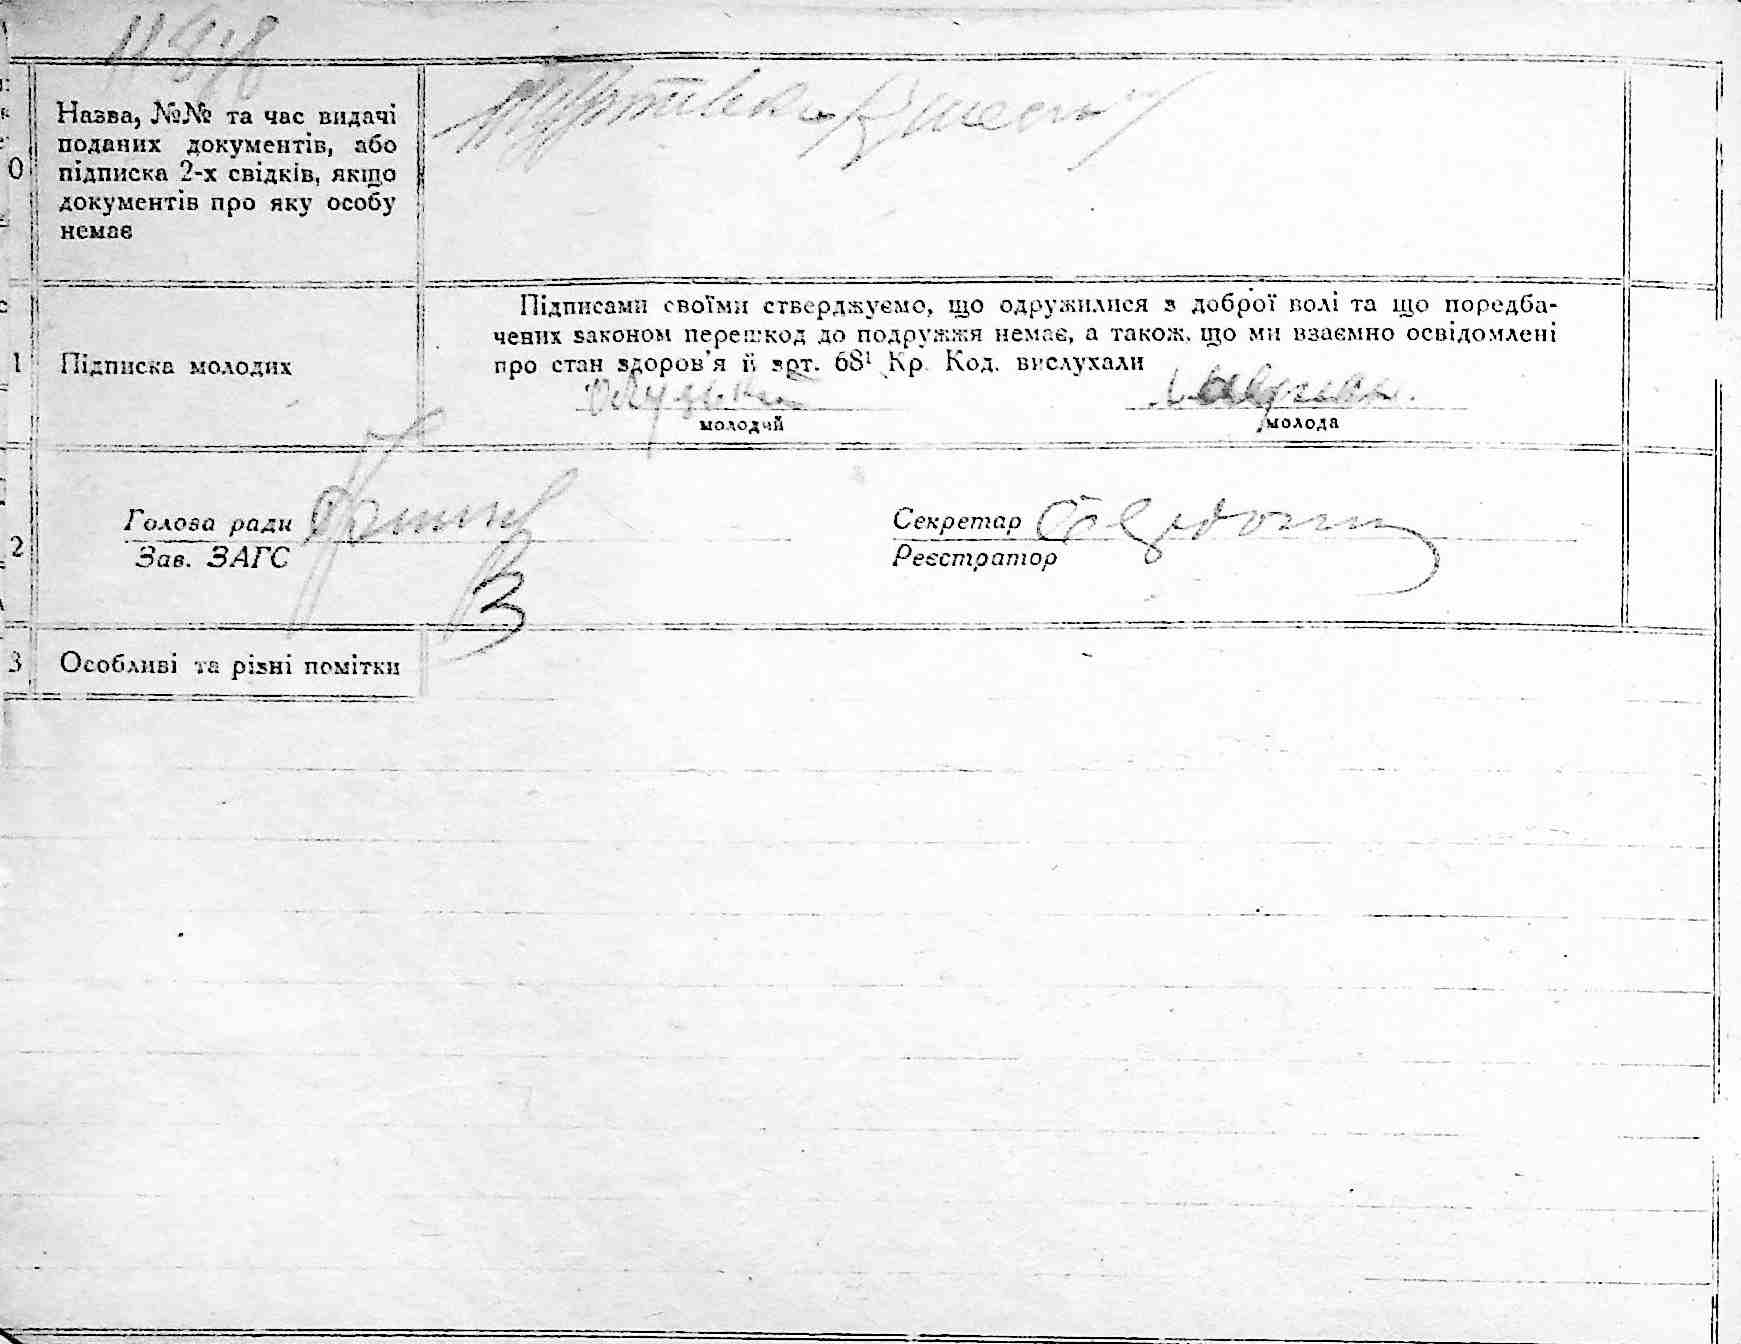 0
Назва, №№ та час видачі
поданих документів, або
підписка 2-х свідків, якщо
документів про яку особу
немає
1
Підписка молодих
Підписами своїми стверджуємо, що одружилися з доброї волі та що поредба-
чених законом перешкод до подружжя немає, а також, що ми взаємно освідомлені
про стан здоров'я й арт. 68¹ Кр. Код. вислухали
молодий
молода
2
Голова ради
Зав. ЗАГС
Секретар
Реєстратор
3
Особливі та різні помітки